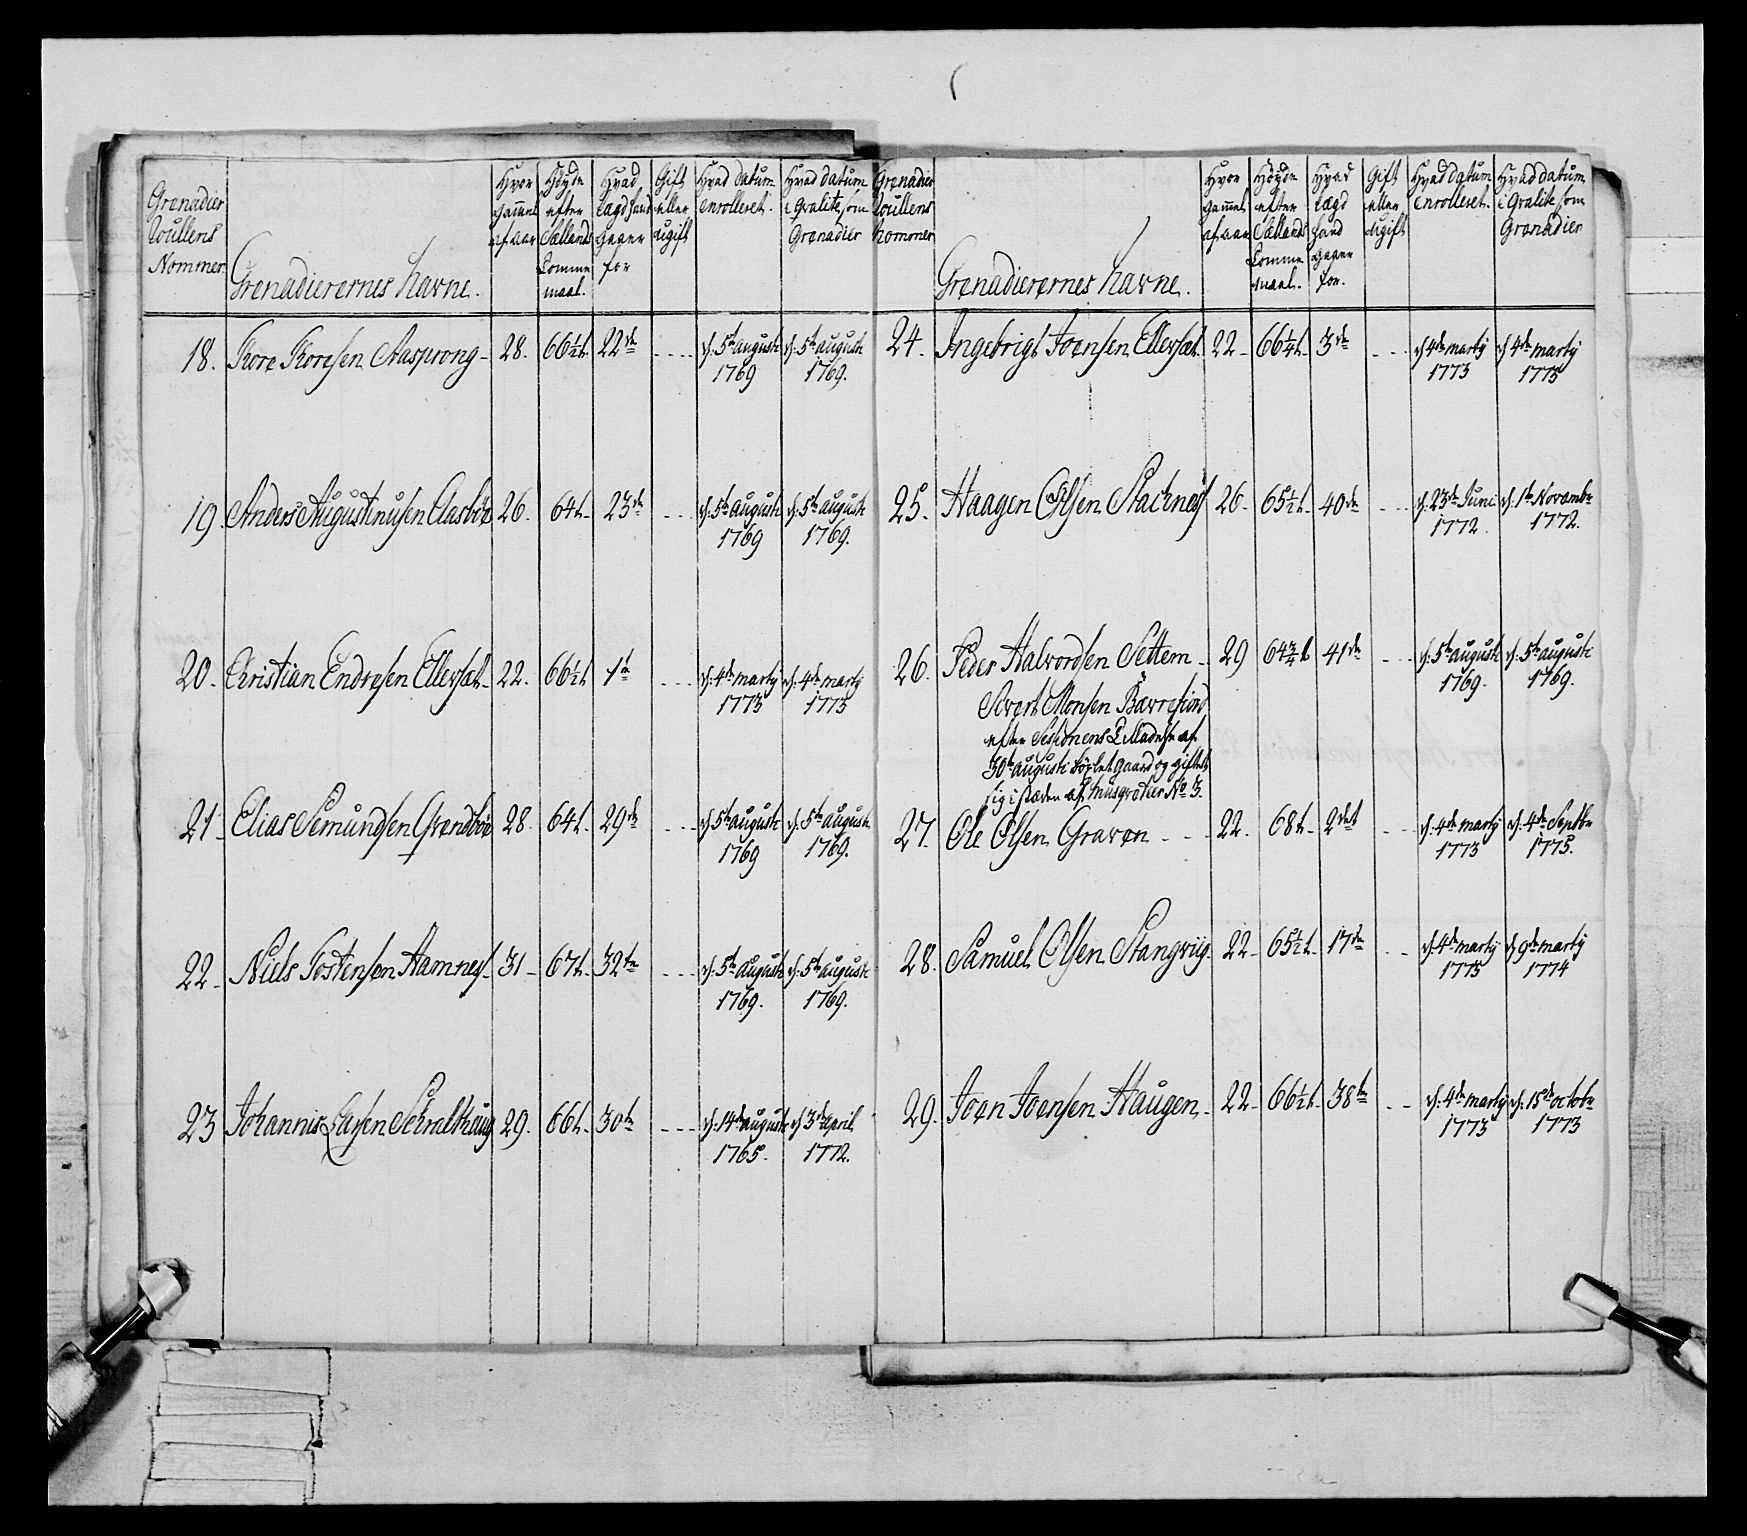 Grenadier
Roullens
Nommer
Grenadierernes Navne.
Hvor
gammel
af aar
Höyde
efter
Sællands
Tomme
maal.
Hvad
Lægd hand
staaer
for
Gift
eller
Ugift
Hvad datum
enrolleret.
Hvad datum
i Qvalite som
Grenadier
18. Tore Toresen Aasprong - 28. 66½ t. 22de - - - d. 5te augusti 1769 d. 5te augusti 1769.
19. Anders Augustinusen Aasböe 26. 64 t. 23de - - - d. 5te augusti 1769 d. 5te augusti 1769.
20. Christian Endresen Ellersæt - 22. 66½ t. 1te - - - d. 4de marty 1773 d. 4de marty 1773
21. Elias Semundsen Grendböe 28. 64 t. 29de - - - d. 5te augusti 1769 d. 5te augusti 1769.
22. Niels Tostensen Hamnes - 31 - 67 t. 32te - - - d. 5te augusti 1769. d. 5te augusti 1769.
23 Johannis 29. 66 t. 30te - - - d. 14de augusti 1765. d. 3de April 1772.
Grenadier
Roullens
Nommer
Grenadierernes Navne.
Hvor
gammel
af aar
Höyde
efter
Sællands
Tomme
maal.
Hvad
Lægd
hand
staaer
for.
Gift
eller
Ugift
Hvad datum
enrolleret.
Hvad datum
i Qvalite som
Grenadier
24. Ingebrigt Joensen Ellersæt 22 - 66¼ t. 3de - - - d. 4de marty 1773 d. 4de marty 1773
25. Haagen Olsen Stachnes 26 - 65½ t. 40de - - - d. 23de Juni 1772. d. 1te Novembr 1772.
26. Peder Halvordsen Settem - 29 64¾ t 41de - - - d. 5te augusti 1769. d. 5te augusti 1769.
Sivert Monsen Bævrefiord
efter Sessionens Tilladelse af
30te augusti böxlet gaard og giftet
sig i stæden af Musqvetier No 3.
27. Ole Olsen Graven - - - 22. 68 t. 2det - - - d. 4de marty 1773 d. 4de Septbr 1775.
28. Samuel Olsen Stangviig - 22 - 65½ t. 17de - - d. 4de marty 1773 d. 9de marty 1774
29. Joen Joensen Haugen - 22 - 66½ t. 38te - - d. 4de marty 1773 d. 15de octobr 1773